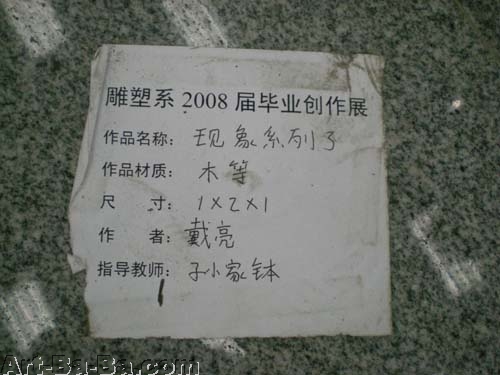 雕塑系 2008 届毕业创作展
作品名称: 现象系列 3
作品材质: 木等
尺 寸: 1×2×1
作 者: 戴亮
指导教师: 孙家钵
1
Art-Ba-Ba.com
Art-Ba-Ba.com